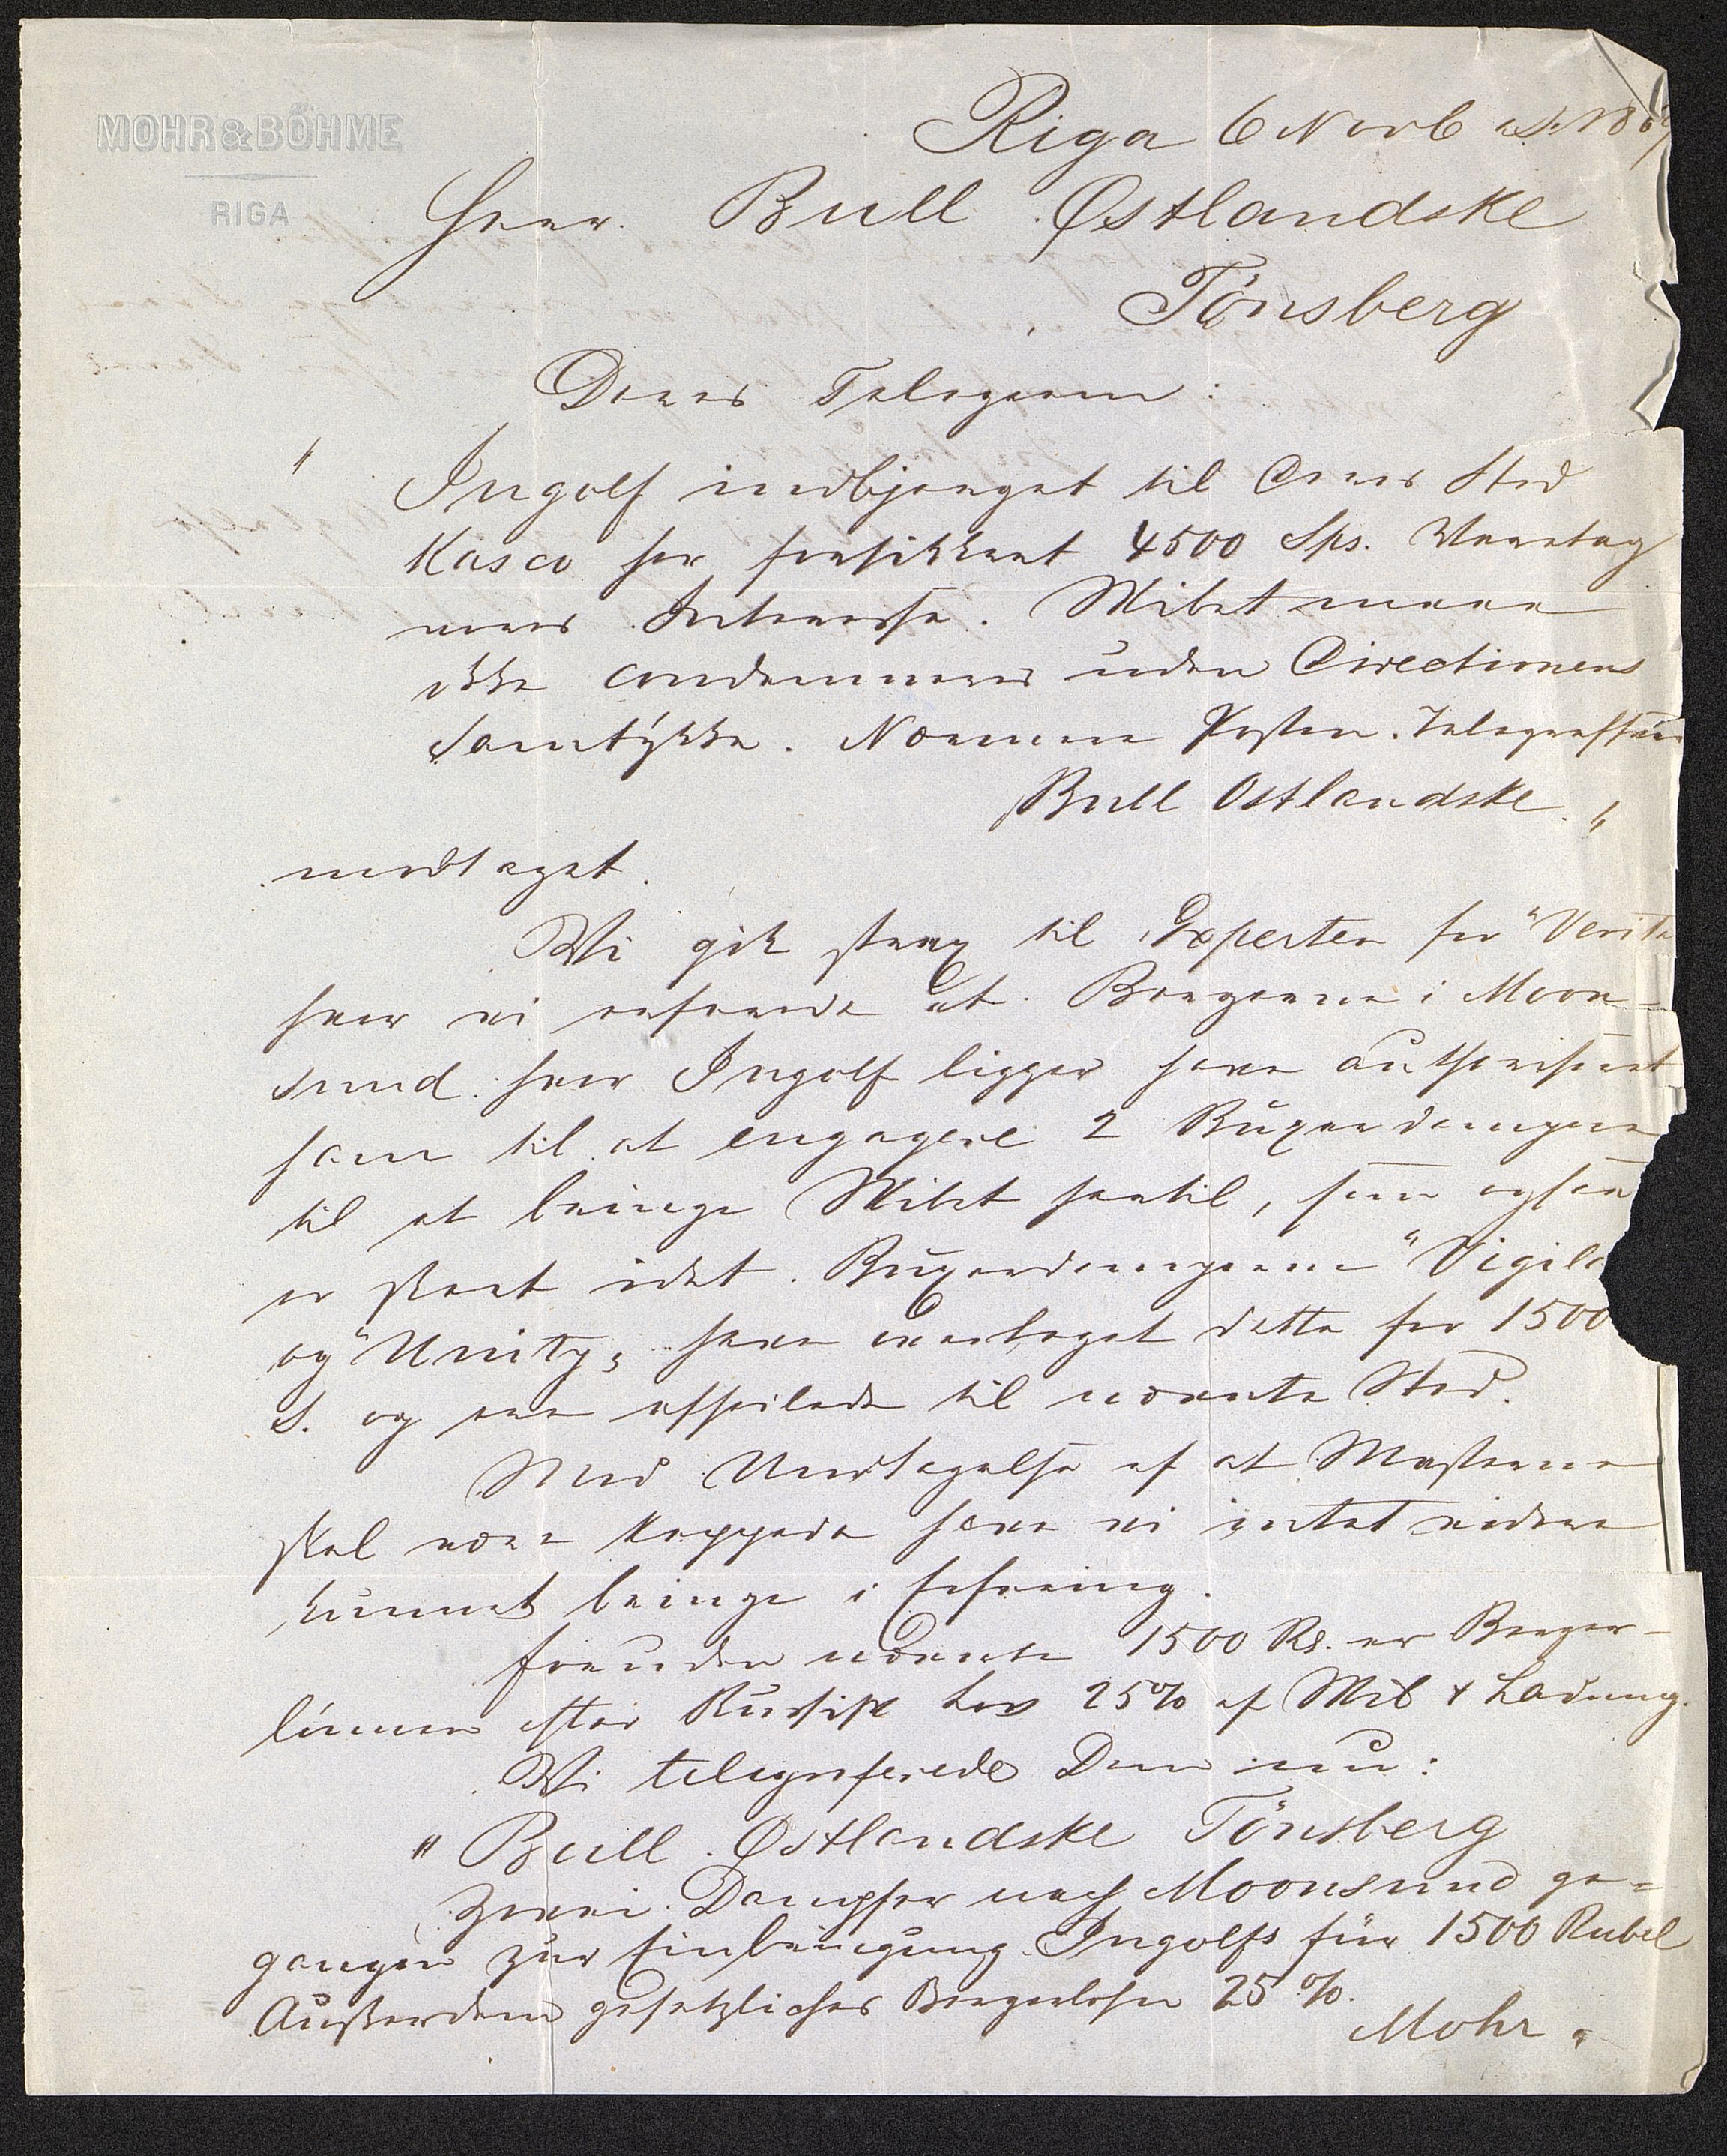 MOHR & BÖHME
RIGA
Riga 6 Novb
Herr. Bull Østlandske
Tönsberg
Deres Telegram:
" Ingolf indbjerget til Deres Sted
Kasco her forsikkret 4500 Sps. Varetag
vores Interesse. Skibet maa
ikke condemneres uden Directionens
Samtykke. Nærmere Posten. Telegraf
Bull Ostlandske. "
modtaget.
Vi gik strax til Experten for "Verita
hvor vi erfarede at Bergerne i Moon-
sund. hvor Ingolf ligger have authoriseret
ham til at engagere 2 Buxerdampere
til at bringe Skibet hertil, som ogsaa
er skeet idet. Buxerdamperne "Vigila
og "Unity" have overtaget dette for 1500
S. og ere afseilede til nævnte Sted.
Med Undtagelse af at Masterne
skal være kappede have vi intet videre
kunnet bringe i Erfaring.
Foruden nævnte 1500 Rs. er Berger-
lönnen efter Russisk Lov 25% af Skib & Ladning.
Vi telegraferede Dem nu:
" Bull. Østlandske Tönsberg
Zwei Dampfer nach Moonsund ge=
gangen zur Einbringung Ingolfs für 1500 Rubel
Außerdem gesetzlicher Bergerlohn 25 %.
Mohr "